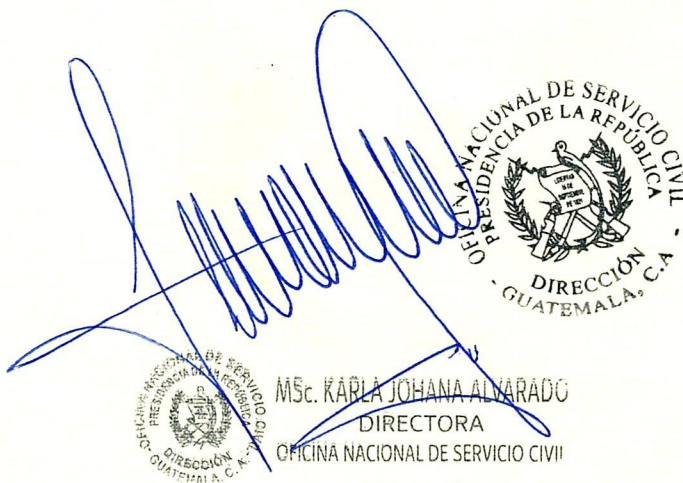 OFICINA NACIONAL DE SERVICIO CIVIL
PRESIDENCIA DE LA REPÚBLICA
LIBERTAD
15 DE
SEPTIEMBRE
DE 1821
DIRECCIÓN
- GUATEMALA, C.A -
OFICINA NACIONAL DE SERVICIO CIVIL
PRESIDENCIA DE LA REPÚBLICA
DIRECCIÓN
GUATEMALA, C.A.
MSc. KARLA JOHANA ALVARADO
DIRECTORA
OFICINA NACIONAL DE SERVICIO CIVIL